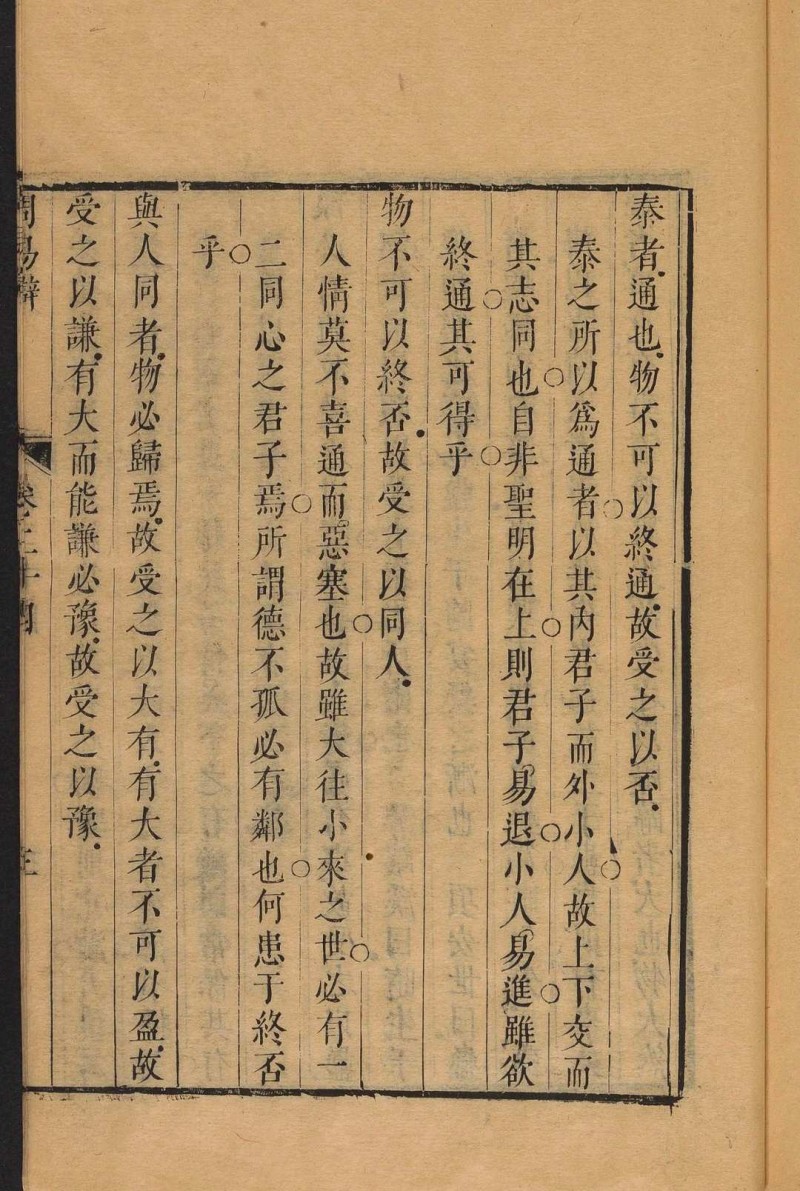 泰者通也物不可以終通故受之以否
泰之所以爲通者以其内君子而外小人故上下交而
其志同也自非聖明在上則君子易退小人易進雖欲
終通其可得乎
物不可以終否故受之以同人
人情莫不喜通而惡塞也故雖大往小來之世必有一
二同心之君子焉所謂德不孤必有鄰也何患于終否
乎
與人同者物必歸焉故受之以大有有大者不可以盈故
受之以謙有大而能謙必豫故受之以豫
周易辯